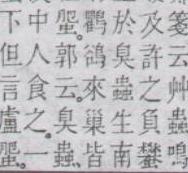 箋云艸蟲鳴
及許之負蠜
於臭蟲生南
鸜鵒來巢皆
蜰。郭云。臭蟲。
中人食之。一
下但言盧蜰。